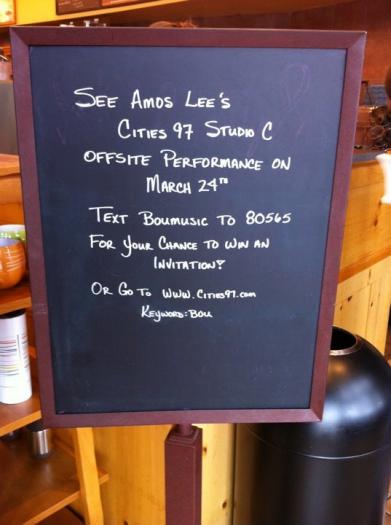 SEE AMOS LEE'S
CITIES 97 STUDIO C
OFFSITE PERFORMANCE ON
MARCH 24TH
TEXT BOUMUSIC TO 80565
FOR YOUR CHANCE TO WIN AN
INVITATION!
OR GO TO WWW.CITIES97.COM
KEYWORD: BOU